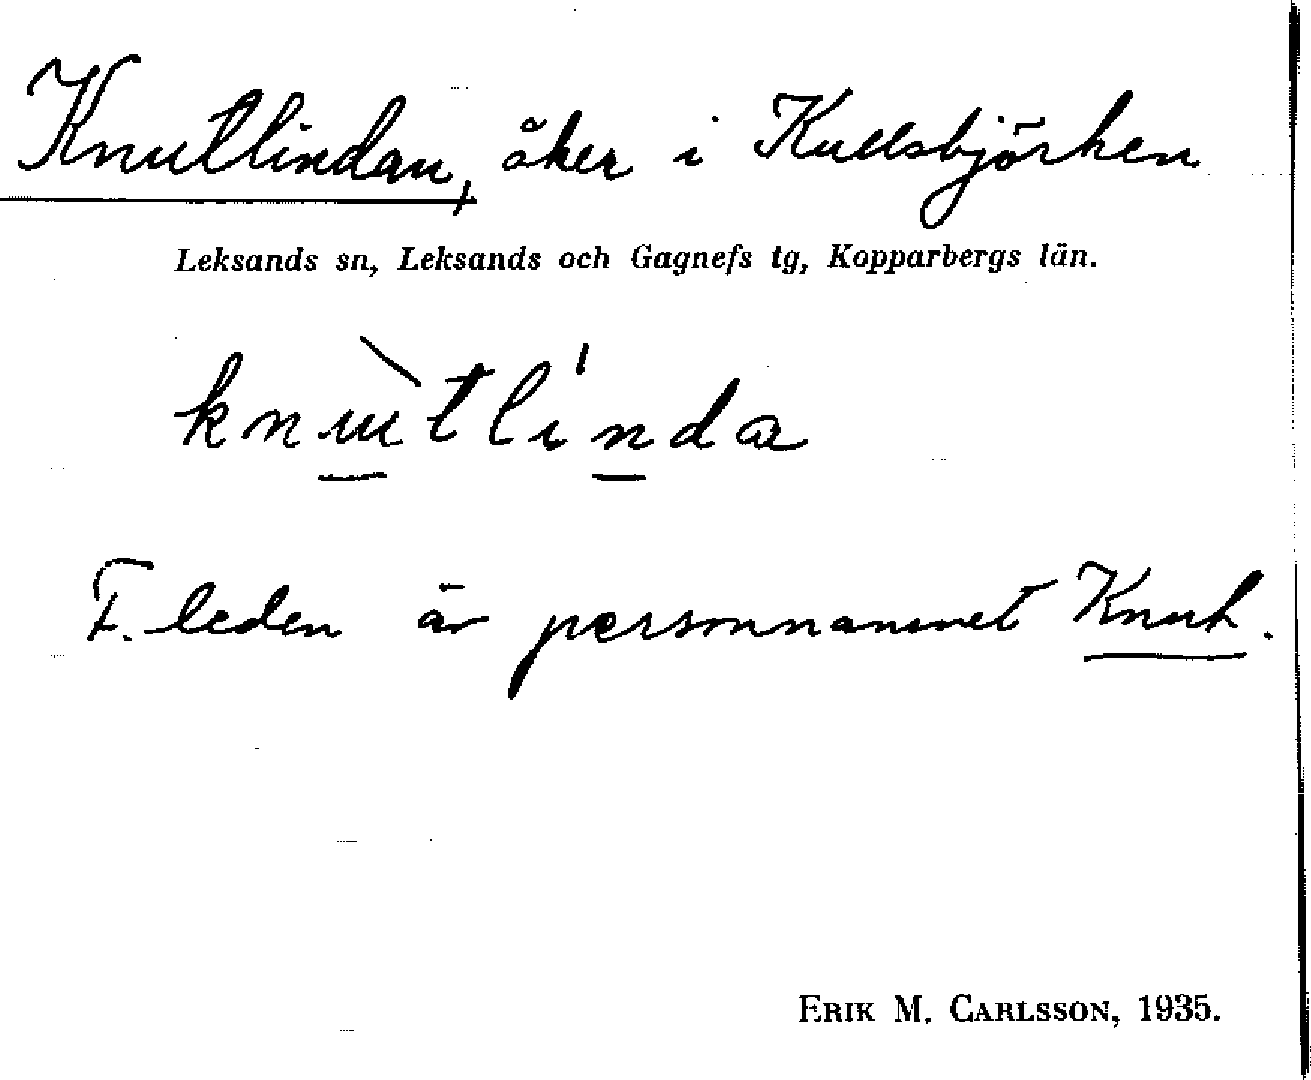 Knutlindan, åker i Kullsbjörken
Leksands sn, Leksands och Gagnefs tg, Kopparbergs län.
knɯ̀tli̍nda
F. leden är personnamnet Knut.
ERIK M. CARLSSON, 1935.